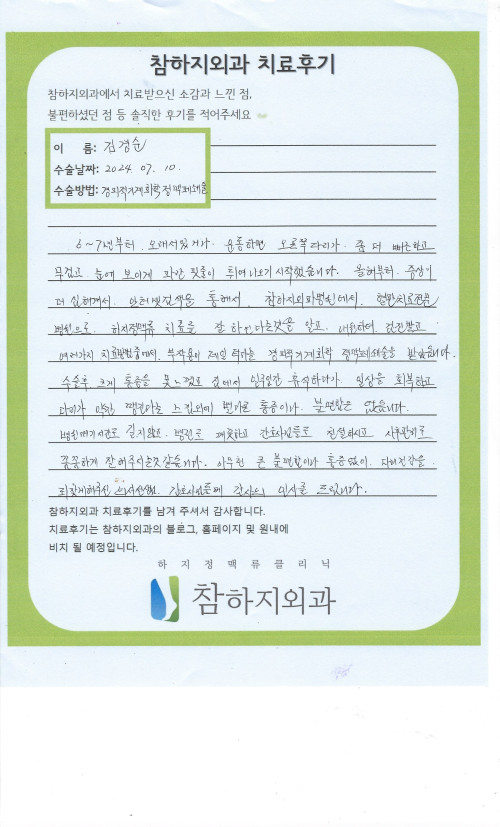 참하지외과 치료후기
참하지외과에서 치료받으신 소감과 느낀 점,
불편하셨던 점 등 솔직한 후기를 적어주세요
이 름: 김경순
수술날짜: 2024. 07. 10.
수술방법: 경피적기계화학정맥폐쇄술
6~7년부터 오래서있거나 운동하면 오른쪽다리가 좀 더 뻐근하고
무겁고 눈에 보이게 파란 핏줄이 튀어나오기 시작했습니다. 올해부터 증상이
더 심해져서 인터넷검색을 통해서 참하지외과병원에서 혈관치료전문
병원으로 하지정맥류 치료를 잘 하신다는것을 알고 내원하여 검진받고
여러가지 치료방법중에서 부작용이 제일 적다는 경피적기계화학 정맥폐쇄술을 받았습니다.
수술후 크게 통증을 못느꼈고 집에서 일주일간 휴식하다가 일상을 회복하고
다리가 약간 땡긴다는 느낌외에 별다른 통증이나 불편함은 없습니다.
병원대기시간도 길지않고 병원도 깨끗하고 간호사님들도 친절하시고 사후관리도
꼼꼼하게 잘해주시는것같습니다. 아무런 큰 불편함이나 통증없이 다리건강을
되찾게해주신 의사선생님, 간호사님들께 감사의 인사를 드립니다.
참하지외과 치료후기를 남겨 주셔서 감사합니다.
치료후기는 참하지외과의 블로그, 홈페이지 및 원내에
비치 될 예정입니다.
하지정맥류클리닉
참하지외과